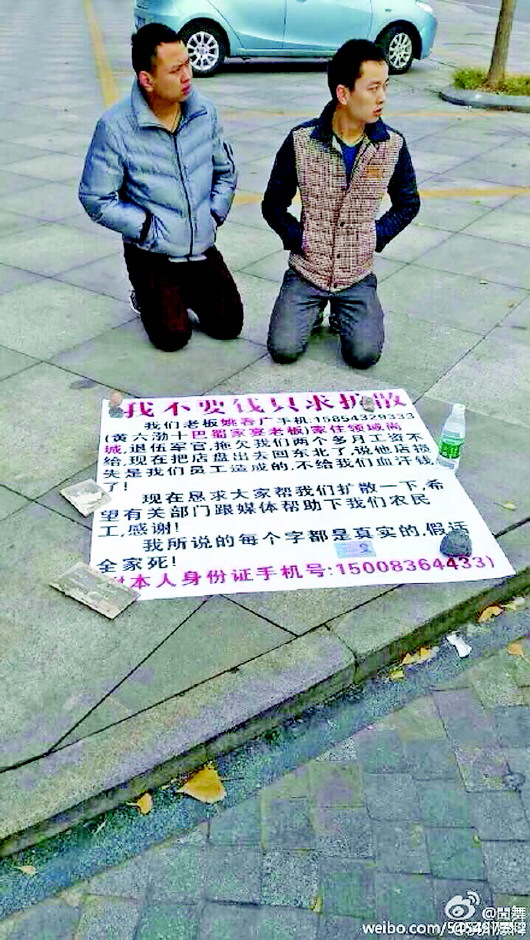 我不要钱只求扩散
我们老板姚春广手机:15854329333
(黄六渤十巴蜀家宴老板)家住领域尚
城,退伍军官,拖欠我们两个多月工资不
给,现在把店盘出去回东北了,说他店损
失是我们员工造成的,不给我们血汗钱
了!
现在恳求大家帮我们扩散一下,希
望有关部门跟媒体帮助下我们农民
工,感谢!
我所说的每个字都是真实的,假话
全家死!
本人身份证手机号:15008364433)
weibo.com/